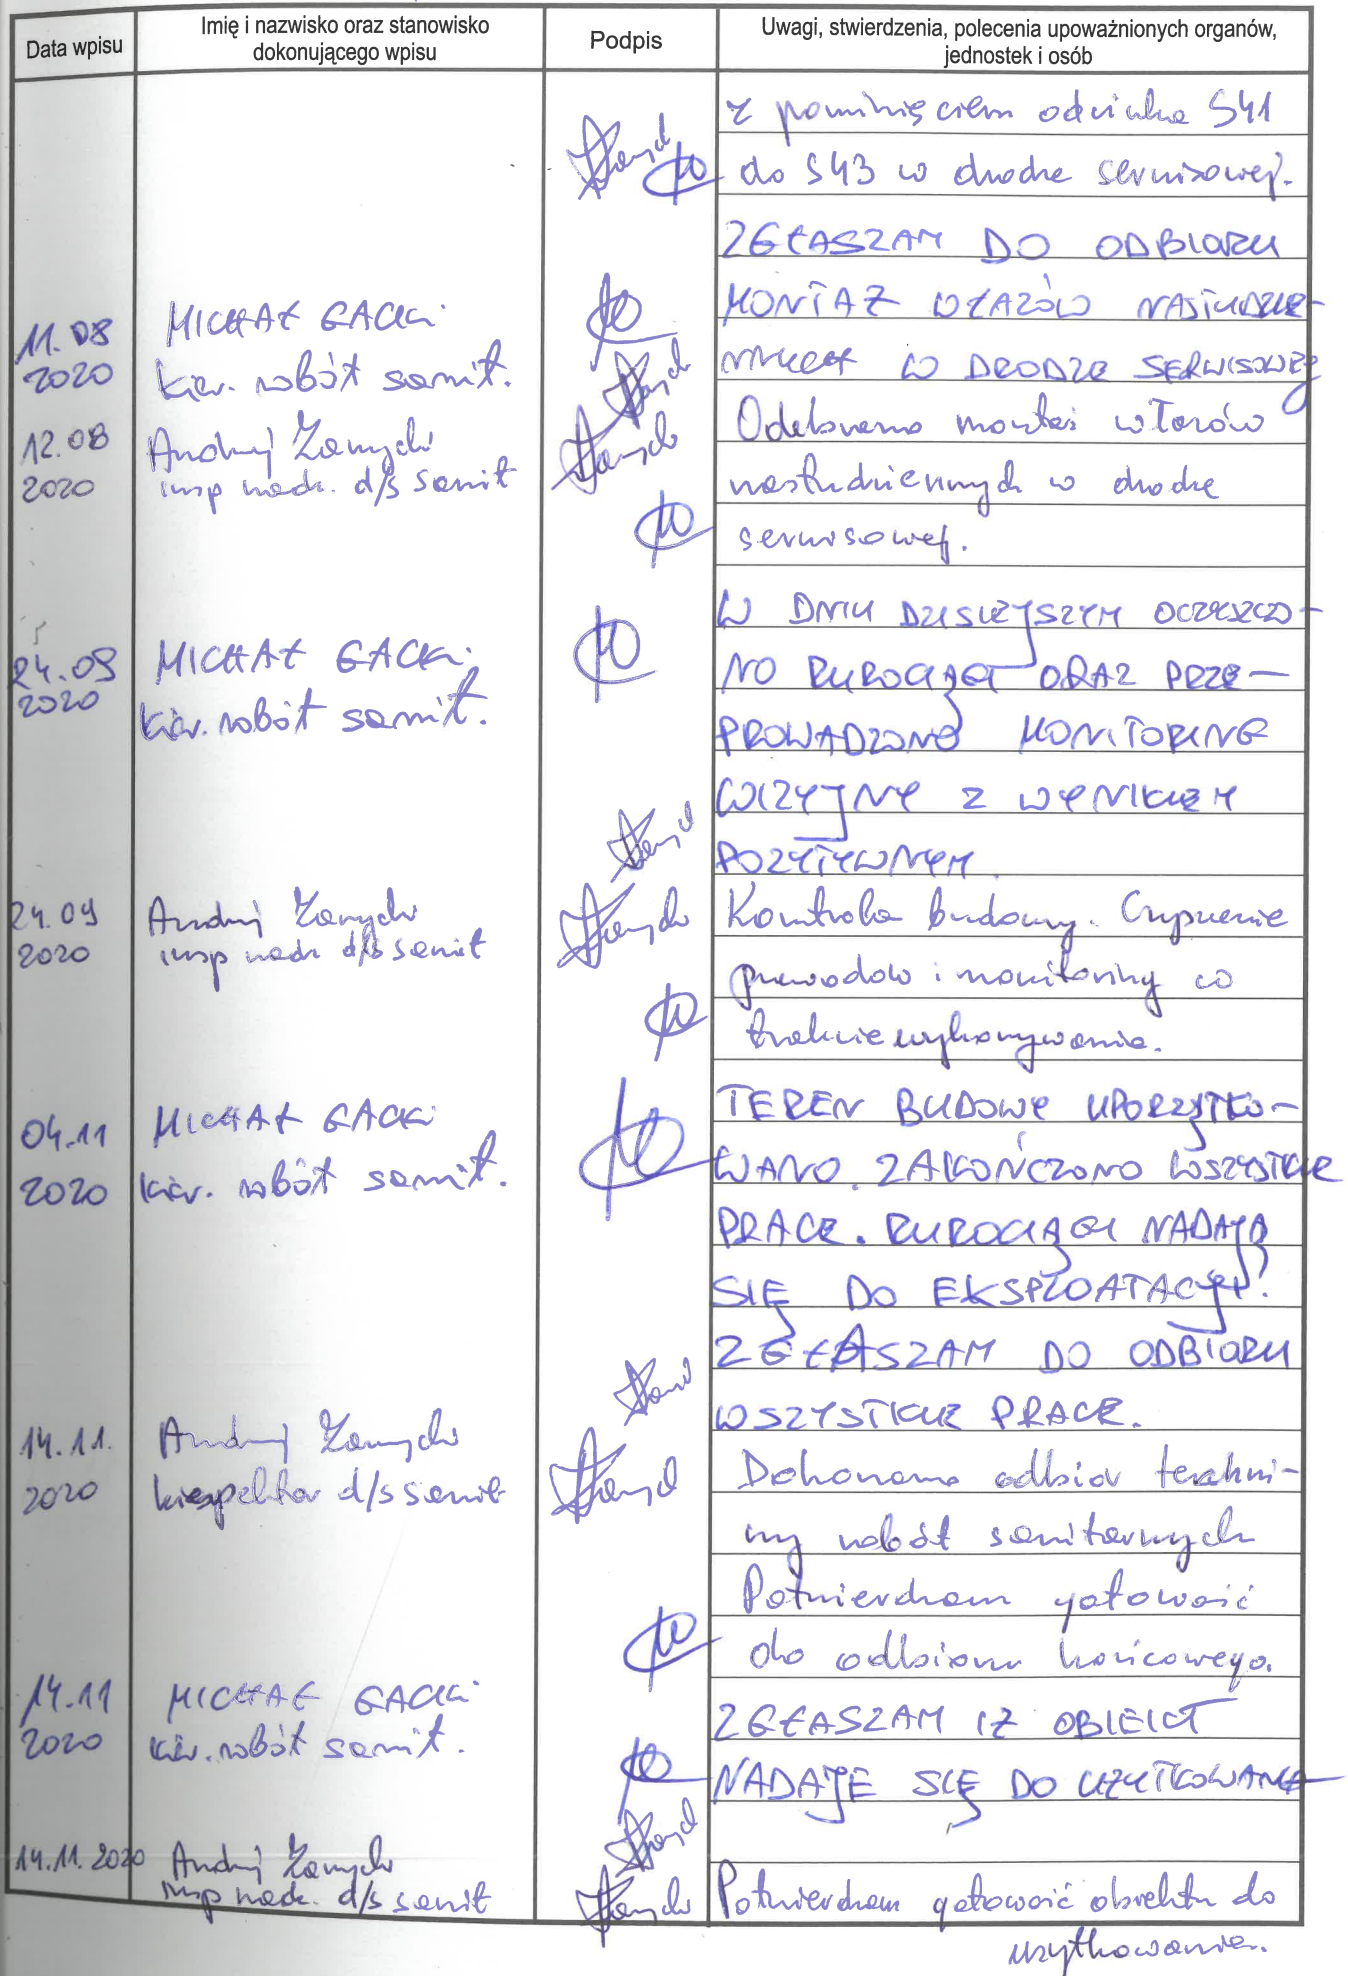 Data wpisu
Imię i nazwisko oraz stanowisko
dokonującego wpisu
Podpis
Uwagi, stwierdzenia, polecenia upoważnionych organów,
jednostek i osób
z pominięciem odcinka S41
do S43 w drodze serwisowej.
ZGŁASZAM DO ODBIORU
11.08
2020
MICHAŁ GACKI
kier. robót sanit.
MONTAŻ WŁAZÓW NASTUDZIE-
NNYCH W DRODZE SERWISOWEJ
12.08
2020
Andrzej
insp nadz. d/s sanit
Odebrano montaż włazów
nastudziennych w drodze
serwisowej.
24.09
2020
MICHAŁ GACKI
kier. robót sanit.
W DNIU DZISIEJSZYM OCZYSZCZO-
NO RUROCIĄGI ORAZ PRZE-
PROWADZONO MONITORING
WIZYJNY Z WYNIKIEM
POZYTYWNYM.
24.09
2020
Andrzej
insp nadz d/s sanit
Kontrola budowy. Czyszczenie
przewodów i monitoring w
trakcie wykonywania.
04.11
2020
MICHAŁ GACKI
kier. robót sanit.
TEREN BUDOWY UPORZĄTKO-
WANO. ZAKOŃCZONO WSZYSTKIE
PRACE. RUROCIĄGI NADAJĄ
SIĘ DO EKSPLOATACJI!
ZGŁASZAM DO ODBIORU
WSZYSTKIE PRACE.
14.11.
2020
Andrzej
inspektor d/s sanit
Dokonano odbiór techni-
ny robót sanitarnych
Potwierdzam gotowość
do odbioru końcowego.
14.11
2020
MICHAŁ GACKI
kier. robót sanit.
ZGŁASZAM IŻ OBIEKT
NADAJE SIĘ DO UŻYTKOWANIA
14.11.2020
Andrzej
insp nadz. d/s sanit
Potwierdzam gotowość obiektu do
użytkowania.